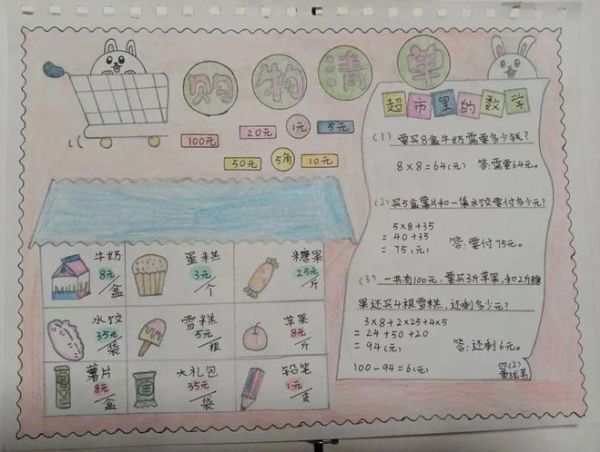 购物清单
100元
20元
1元
5元
50元
5角
10元
牛奶
8元/盒
蛋糕
3元/个
糖果
25元/斤
水饺
35元/袋
雪糕
5元/根
苹果
8元/斤
薯片
8元/盒
大礼包
35元/袋
铅笔
1元/支
超市里的数学
(1) 要买8盒牛奶需要多少钱?
8×8=64(元) 答:需要64元。
(2) 买5盒薯片和一袋水饺要付多少元?
5×8+35
=40+35
=75(元) 答:要付75元。
(3) 一共有100元,要买3斤苹果,和2斤糖
果还买4根雪糕,还剩多少元?
3×8+2×25+4×5
=24+50+20
=94(元) 答:还剩6元。
100-94=6(元)